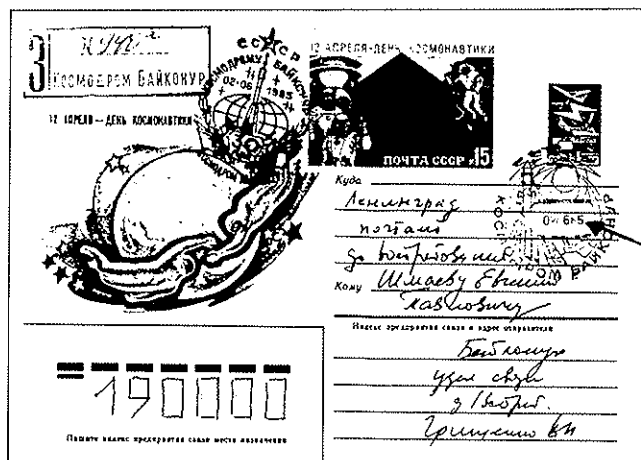 З
Космодром БАЙКОНУР
12 АПРЕЛЯ — ДЕНЬ КОСМОНАВТИКИ
СССР
КОСМОДРОМУ БАЙКОНУР
02-06 1985
30
12 АПРЕЛЯ-ДЕНЬ КОСМОНАВТИКИ
ПОЧТА СССР 15
КОСМОДРОМ БАЙКОНУР
Куда
Ленинград
почтамт
до востребования
Кому Шмаеву Евгению
Павловичу
Индекс предприятия связи и адрес отправителя
Байконур
узел связи
д/востреб.
Грищенко ВН
190000
Пишите индекс предприятия связи места назначения